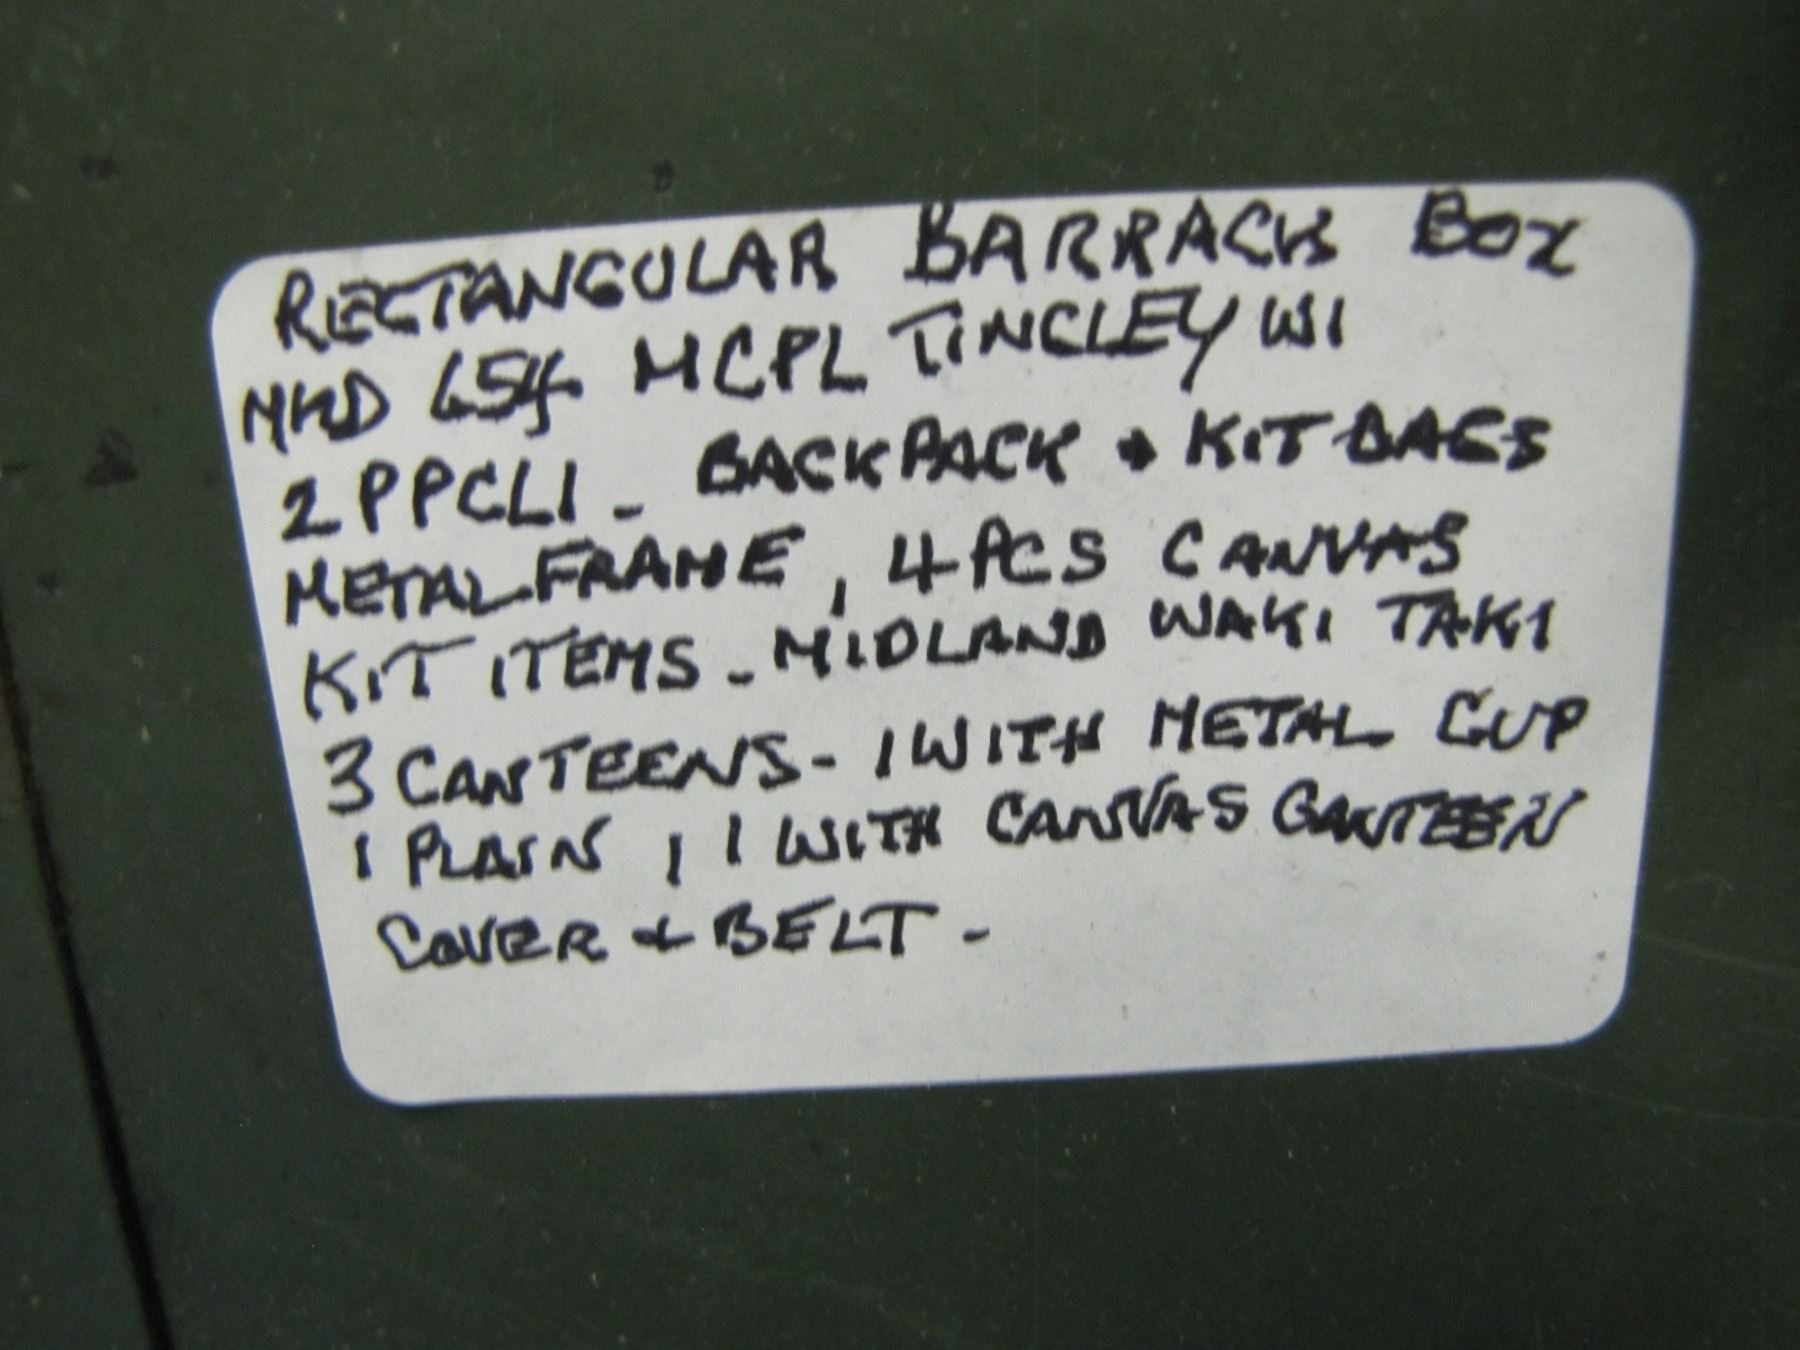 RECTANGULAR BARRACK BOX
MKD 654 MCPL TINGLEY WI
2 PPCLI - BACKPACK & KIT BAGS
METAL FRAME, 4 PCS CANVAS
KIT ITEMS - MIDLAND WAKI TAKI
3 CANTEENS - 1 WITH METAL CUP
1 PLAIN, 1 WITH CANVAS CANTEEN
COVER & BELT -